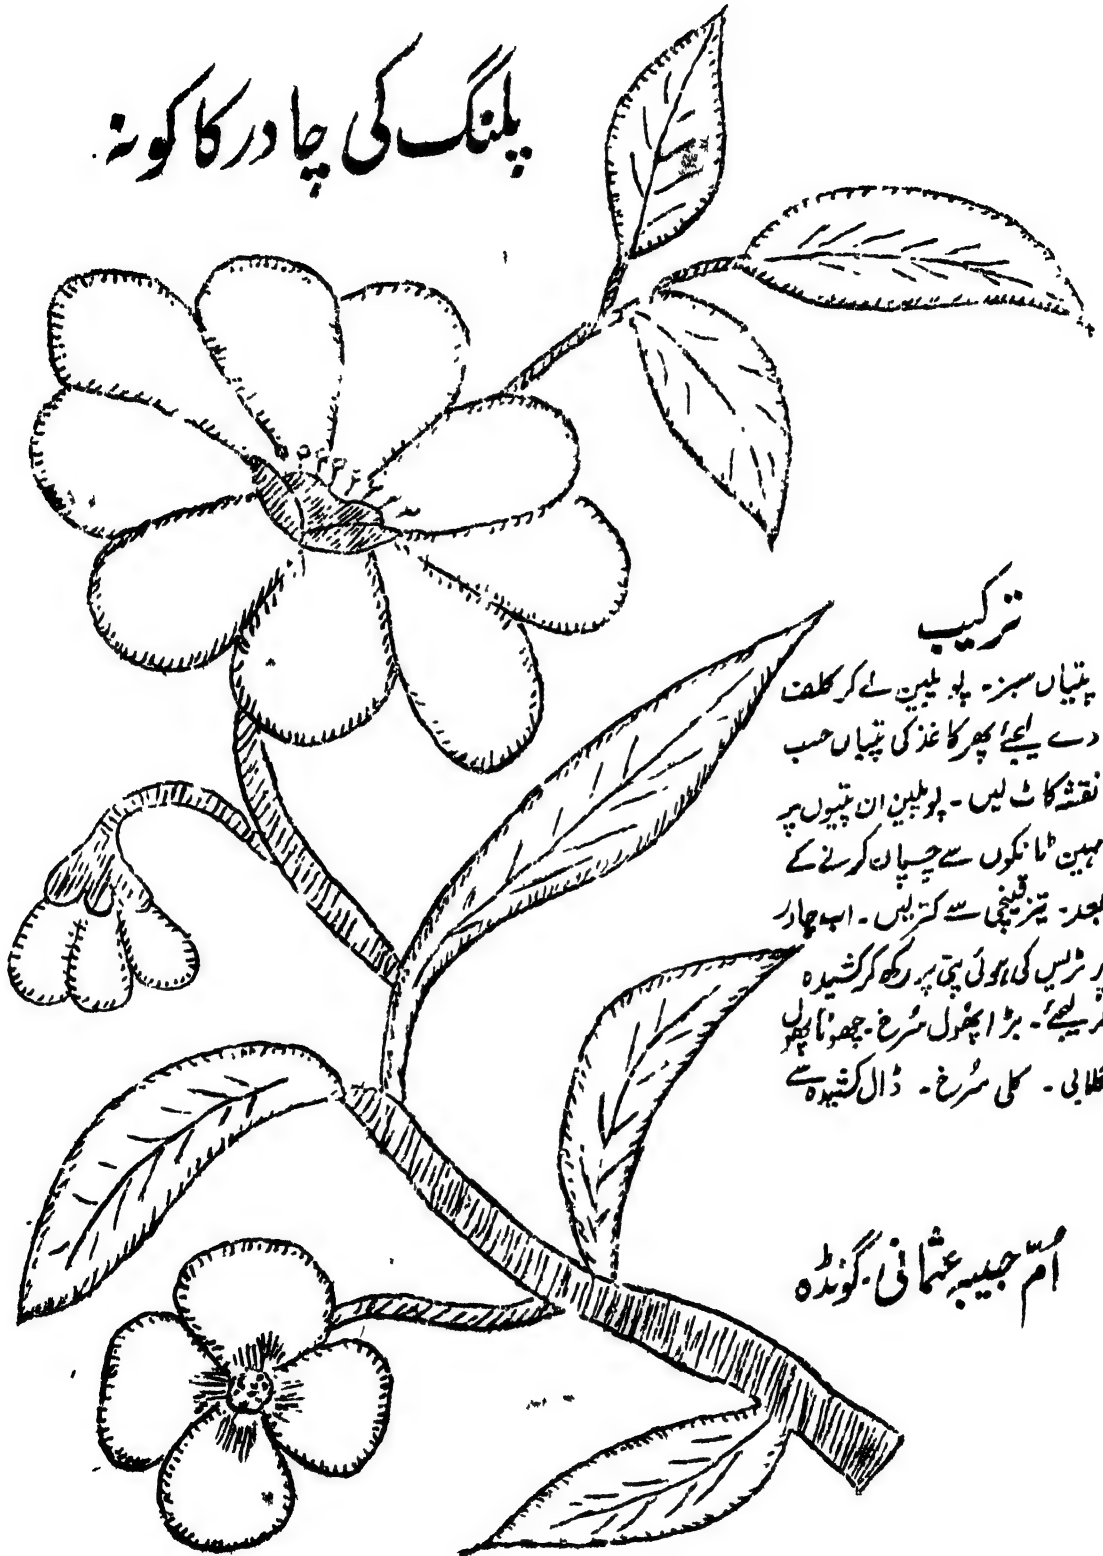 پلنگ کی چادر کا کونہ
ترکیب
پتیاں سبز۔ پوپلین لے کر کلف
دے لیجئے پھر کاغذ کی پتیاں حسب
نقشہ کاٹ لیں۔ پوپلین ان پتیوں پر
مہین ٹانکوں سے چسپاں کرنے کے
بعد۔ تیز قینچی سے کتر لیں۔ اب چادر
پر ٹریس کی ہوئی پتی پر رکھ کر کشیدہ
کر لیجئے۔ بڑا پھول سُرخ۔ چھوٹا پھول
گلابی۔ کلی سُرخ۔ ڈال کشیدہ سے
اُمّ حبیبہ عثمانی۔ گونڈہ